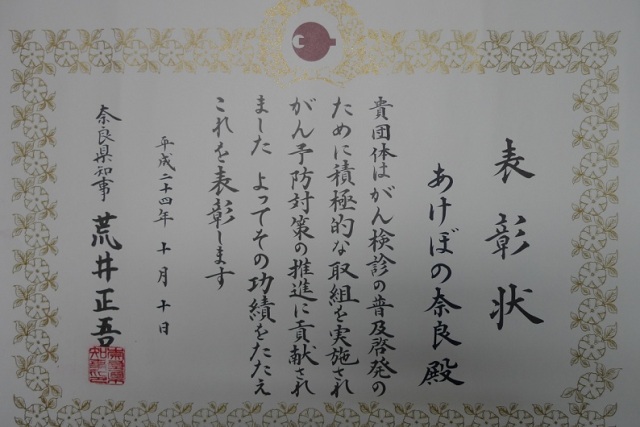 表彰状
あけぼの奈良殿
貴団体はがん検診の普及啓発の
ために積極的な取組を実施され
がん予防対策の推進に貢献され
ました よってその功績をたたえ
これを表彰します
平成二十四年十月十日
奈良県知事 荒井正吾